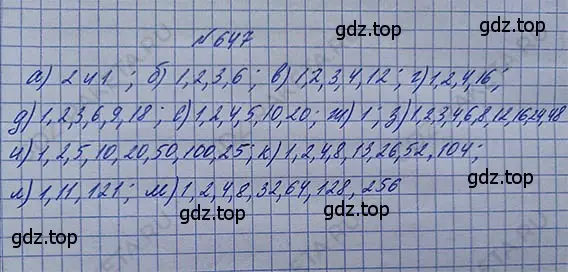 №647
а) 2 и 1 ; б) 1,2,3,6 ; в) 1,2,3,4,12 ; г) 1,2,4,16 ;
д) 1,2,3,6,9,18 ; е) 1,2,4,5,10,20 ; ж) 1 ; з) 1,2,3,4,6,8,12,16,24,48
и) 1,2,5,10,20,50,100,25 ; к) 1,2,4,8,13,26,52,104 ;
л) 1,11,121 ; м) 1,2,4,8,32,64,128,256
gdz.top gdz.top
gdz.top gdz.top
gdz.top gdz.top
gdz.top gdz.top